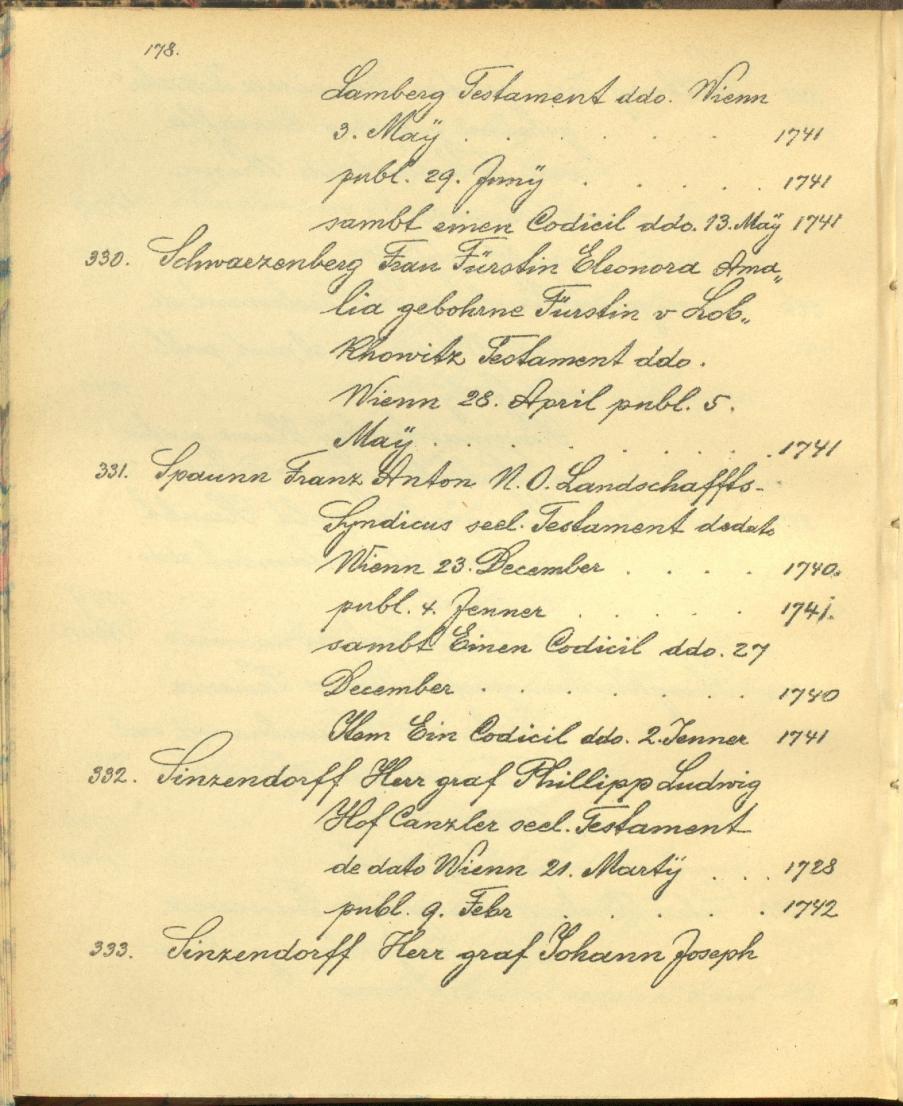 178.
Lamberg Testament ddo. Wienn
3. Maÿ . . . . . . 1741
publ. 29. Junÿ . . . . . 1741
sambt einen Codicil ddo. 13. Maÿ 1741
330. Schwarzenberg Frau Fürstin Eleonora Ama„
lia gebohrne Fürstin v Lob„
Khowitz Testament ddo.
Wienn 28. April publ. 5.
Maÿ . . . . . . . 1741
331. Spaunn Franz Anton N. O. Landschaffts-
Syndicus seel. Testament dedato
Wienn 23. December . . . . 1740.
publ. 4. Jenner . . . . . 1741.
sambt Einen Codicil ddo. 27
December . . . . . . 1740
Item Ein Codicil ddo. 2. Jenner 1741
332. Sinzendorff Herr graf Phillipp Ludwig
Hof Canzler seel. Testament
de dato Wienn 21. Martÿ . . . 1728
publ. 9. Febr . . . . . 1742
333. Sinzendorff Herr graf Johann Joseph